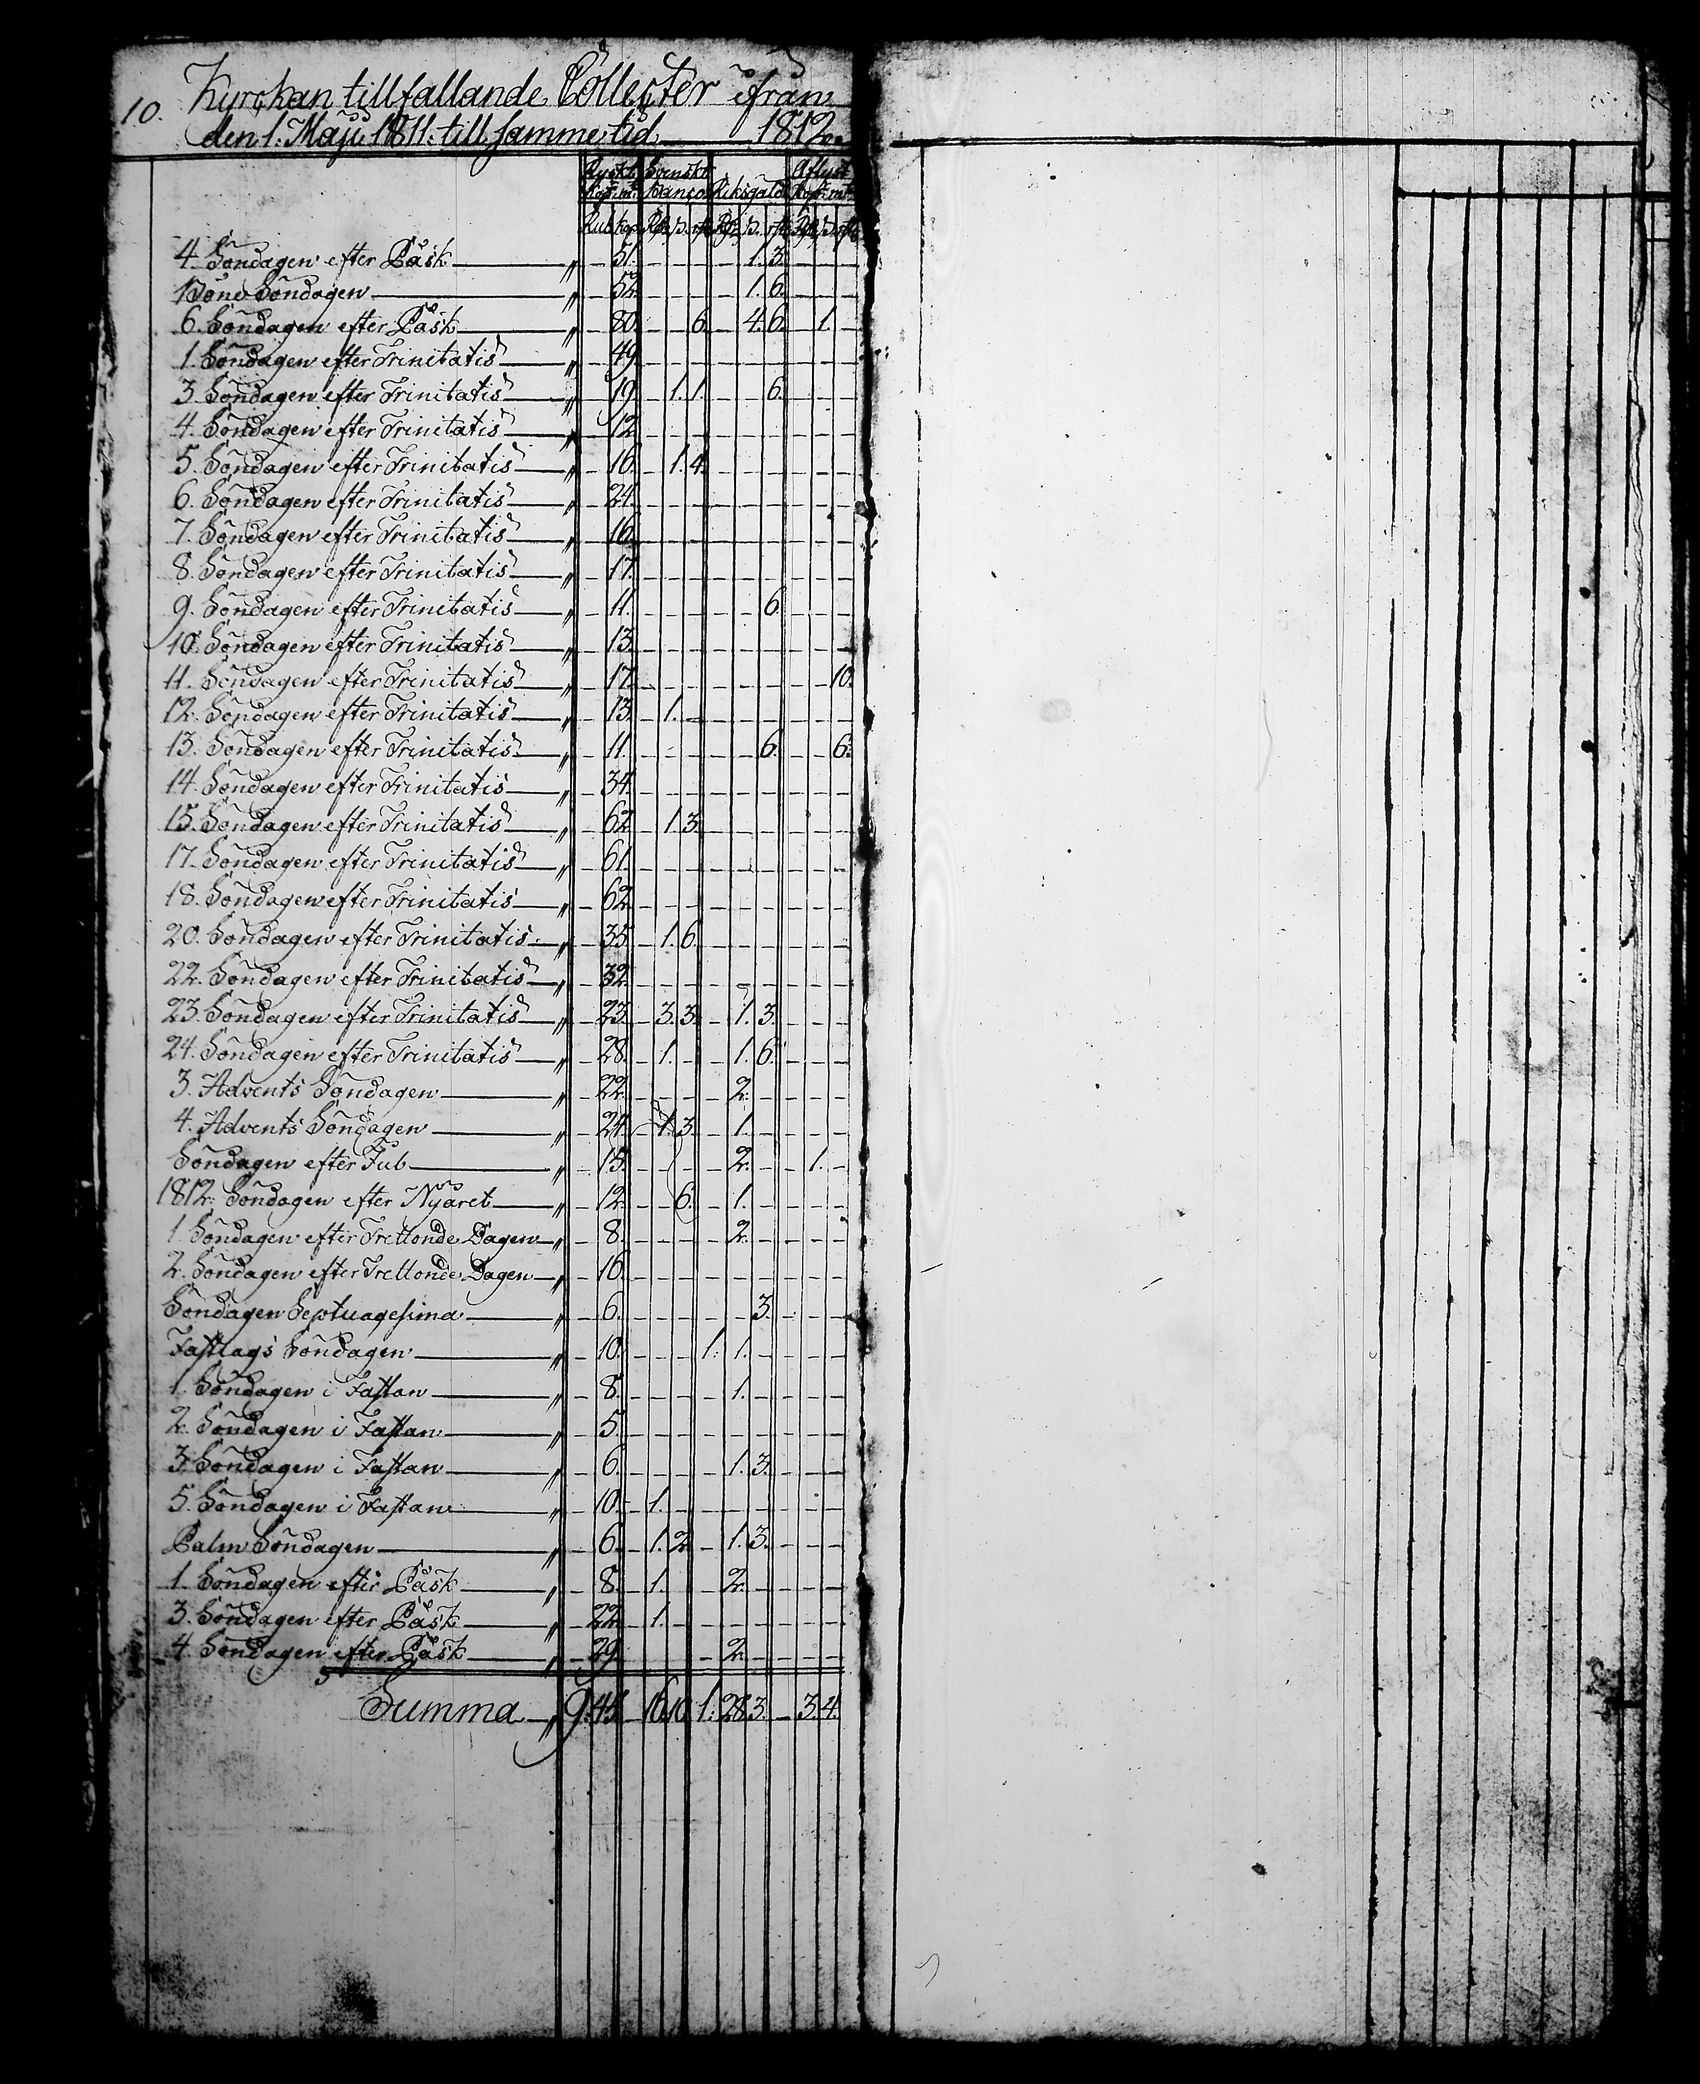 10. Kyrckan tillfallande Collecter ifrån
den 1. Maji 1811. till samme tid 1812
Ryskt Svenskt Aflyst
Kopr: mt: Banco Riksgäld Kopr: mt:
Rub kop Rd: s. rst Rd: s. rst Rd: s. rst
4. Söndagen efter Påsk " 51. 1. 3.
Böne Söndagen " 52. 1. 6.
6. Söndagen efter Påsk " 80. 6. 4. 6. 1.
1. Söndagen efter Trinitatis " 49.
3. Söndagen efter Trinitatis " 19. 1. 1. 6.
4. Söndagen efter Trinitatis " 12.
5. Söndagen efter Trinitatis " 16. 1. 4.
6. Söndagen efter Trinitatis " 24.
7. Söndagen efter Trinitatis " 16.
8. Söndagen efter Trinitatis " 17.
9. Söndagen efter Trinitatis " 11. 6.
10. Söndagen efter Trinitatis " 13.
11. Söndagen efter Trinitatis " 17. 10.
12. Söndagen efter Trinitatis " 13. 1.
13. Söndagen efter Trinitatis " 11. 6. 6.
14. Söndagen efter Trinitatis " 34.
15. Söndagen efter Trinitatis " 62. 1. 3.
17. Söndagen efter Trinitatis " 61.
18. Söndagen efter Trinitatis " 62.
20. Söndagen efter Trinitatis " 35. 1. 6.
22. Söndagen efter Trinitatis " 32.
23. Söndagen efter Trinitatis " 23. 3. 3. 1. 3.
24. Söndagen efter Trinitatis " 28. 1. 1. 6.
3. Advents Söndagen " 22. 2.
4. Advents Söndagen " 24. 1. 3. 1.
Söndagen efter Jul " 15. 2. 1.
1812. Söndagen efter Nyåret " 12. 6. 1.
1. Söndagen efter Trettonde Dagen " 8. 2.
2. Söndagen efter Trettonde Dagen " 16.
Söndagen Septuagesima " 6. 3.
Fastlags Söndagen " 10. 1. 1.
1. Söndagen i Fastan " 8. 1.
2. Söndagen i Fastan " 5.
3. Söndagen i Fastan " 6. 1. 3.
5. Söndagen i Fastan " 10. 1.
Palm Söndagen " 6. 1. 2. 1. 3.
1. Söndagen efter Påsk " 8. 1. 2.
3. Söndagen efter Påsk " 22. 1.
4. Söndagen efter Påsk " 29. 2.
Summa " 9. 45. 16. 10. 1. 28. 3. 3. 4.